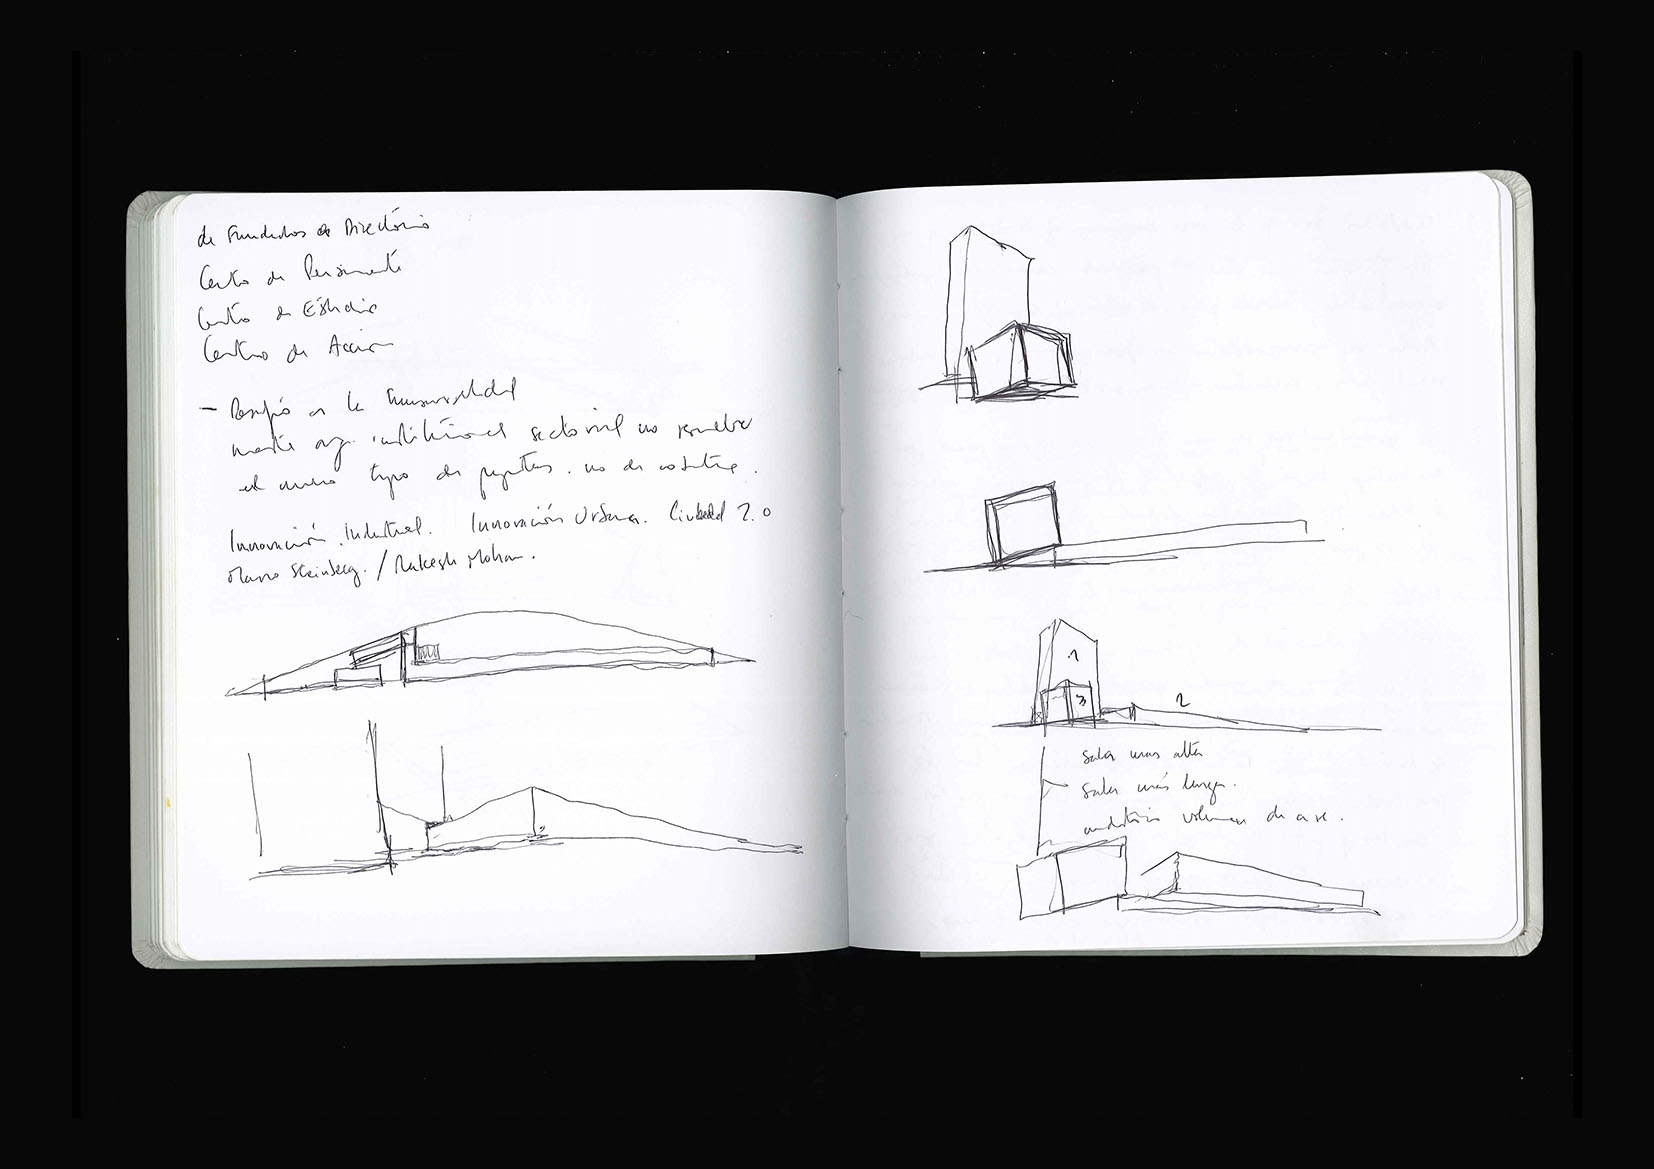 de Fundadores a Directório
Centro de Pensamiento
Centro de Estudio
Centro de Acción
– Desafío a la transversalidad
org. institucional sectorial no resuelve
el nuevo tipo de preguntas. no de
Innovación Industrial. Innovación Urbana. Ciudad 2.0
Mario Steinberg. / Rakesh Mohan.
1
3
2
Sala mas alta
Sala más larga.
auditório volumen de aire.